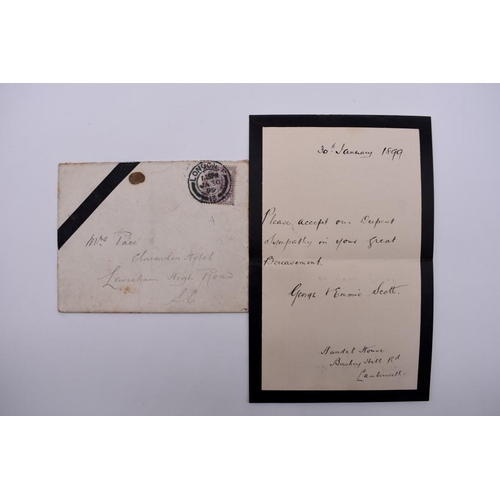 LONDON
JA 30
99
Mrs Pace
Clarendon Hotel
Lewisham High Road
S.E.
30th January 1899
Please accept our Deepest
Sympathy in your great
Bereavement.
George & Emmie Scott.
Handel House
Bushey Hill Rd
Camberwell.